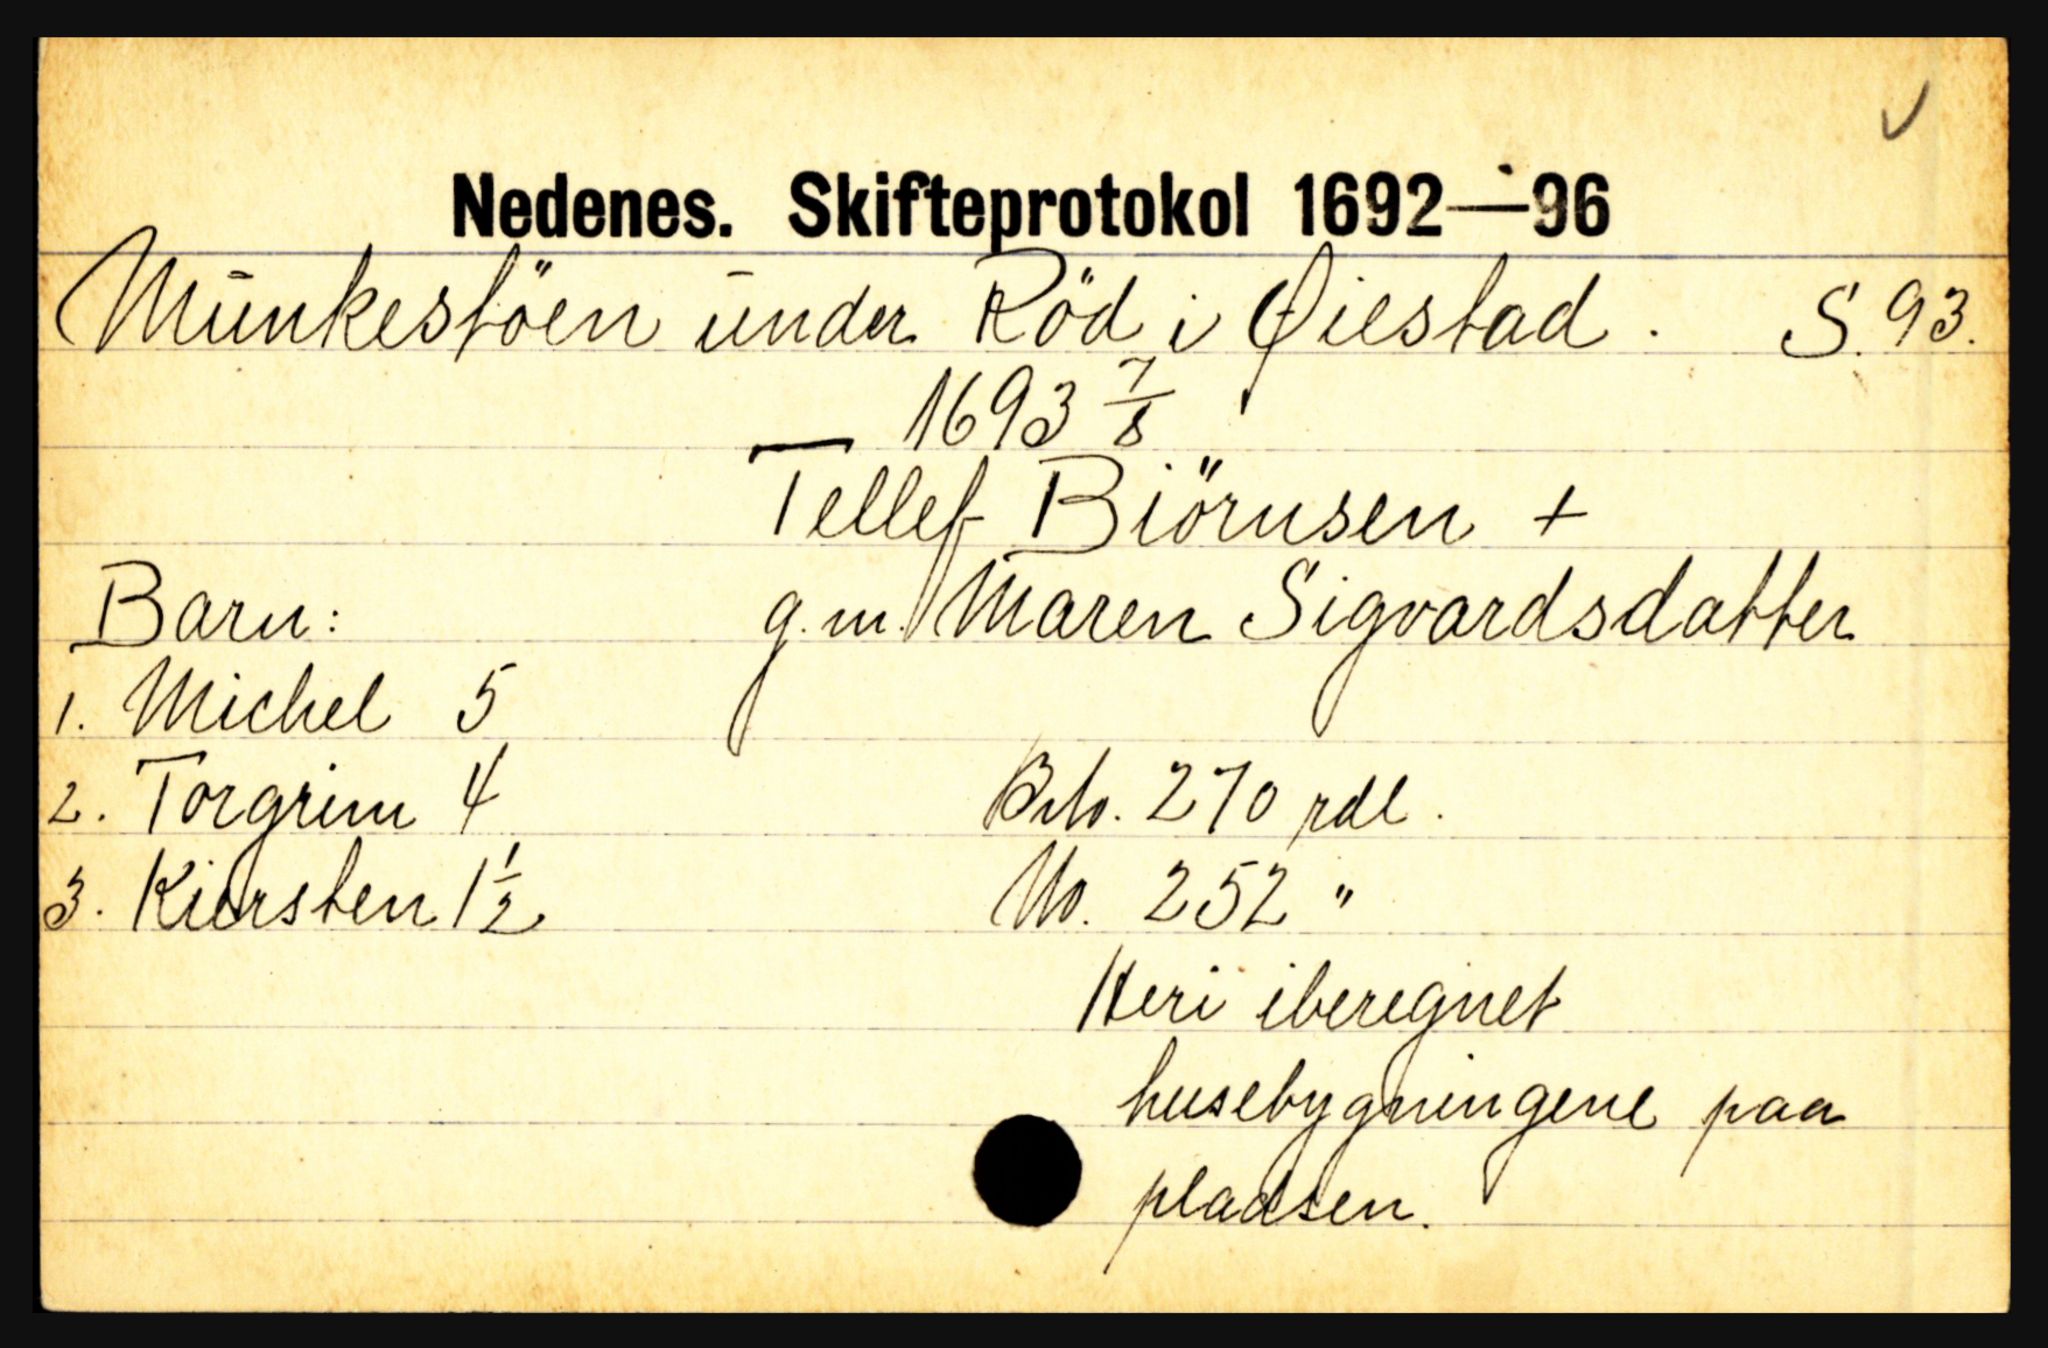 Nedenes. Skifteprotokol 1692—96
Munkestöen under Röd i Øiestad. S. 93.
1693 7/8
Tellef Biörnsen +
Barn: g. m. Maren Sigvardsdatter
1. Michel 5
2. Torgrim 4 Bto. 270 rdl.
3. Kiersten 1 1/2 No. 252 "
Heri iberegnet
husebygningene paa
pladsen.